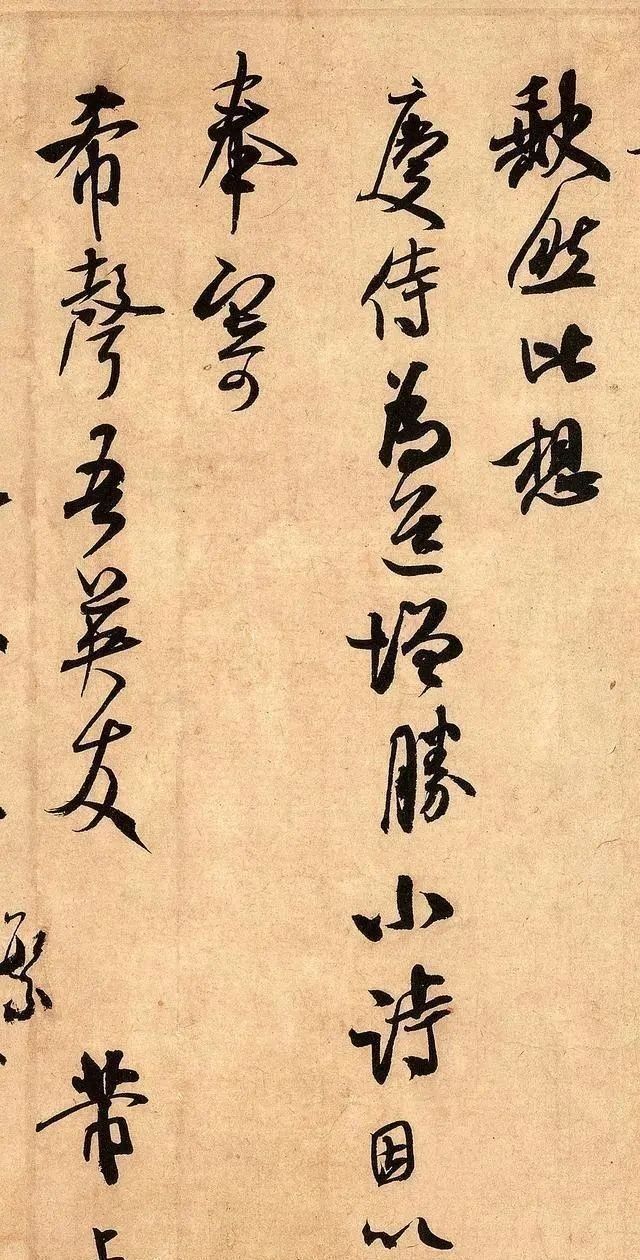 缺然比想
慶侍為道增勝小詩因以
奉寄
希聲吾英友　芾上